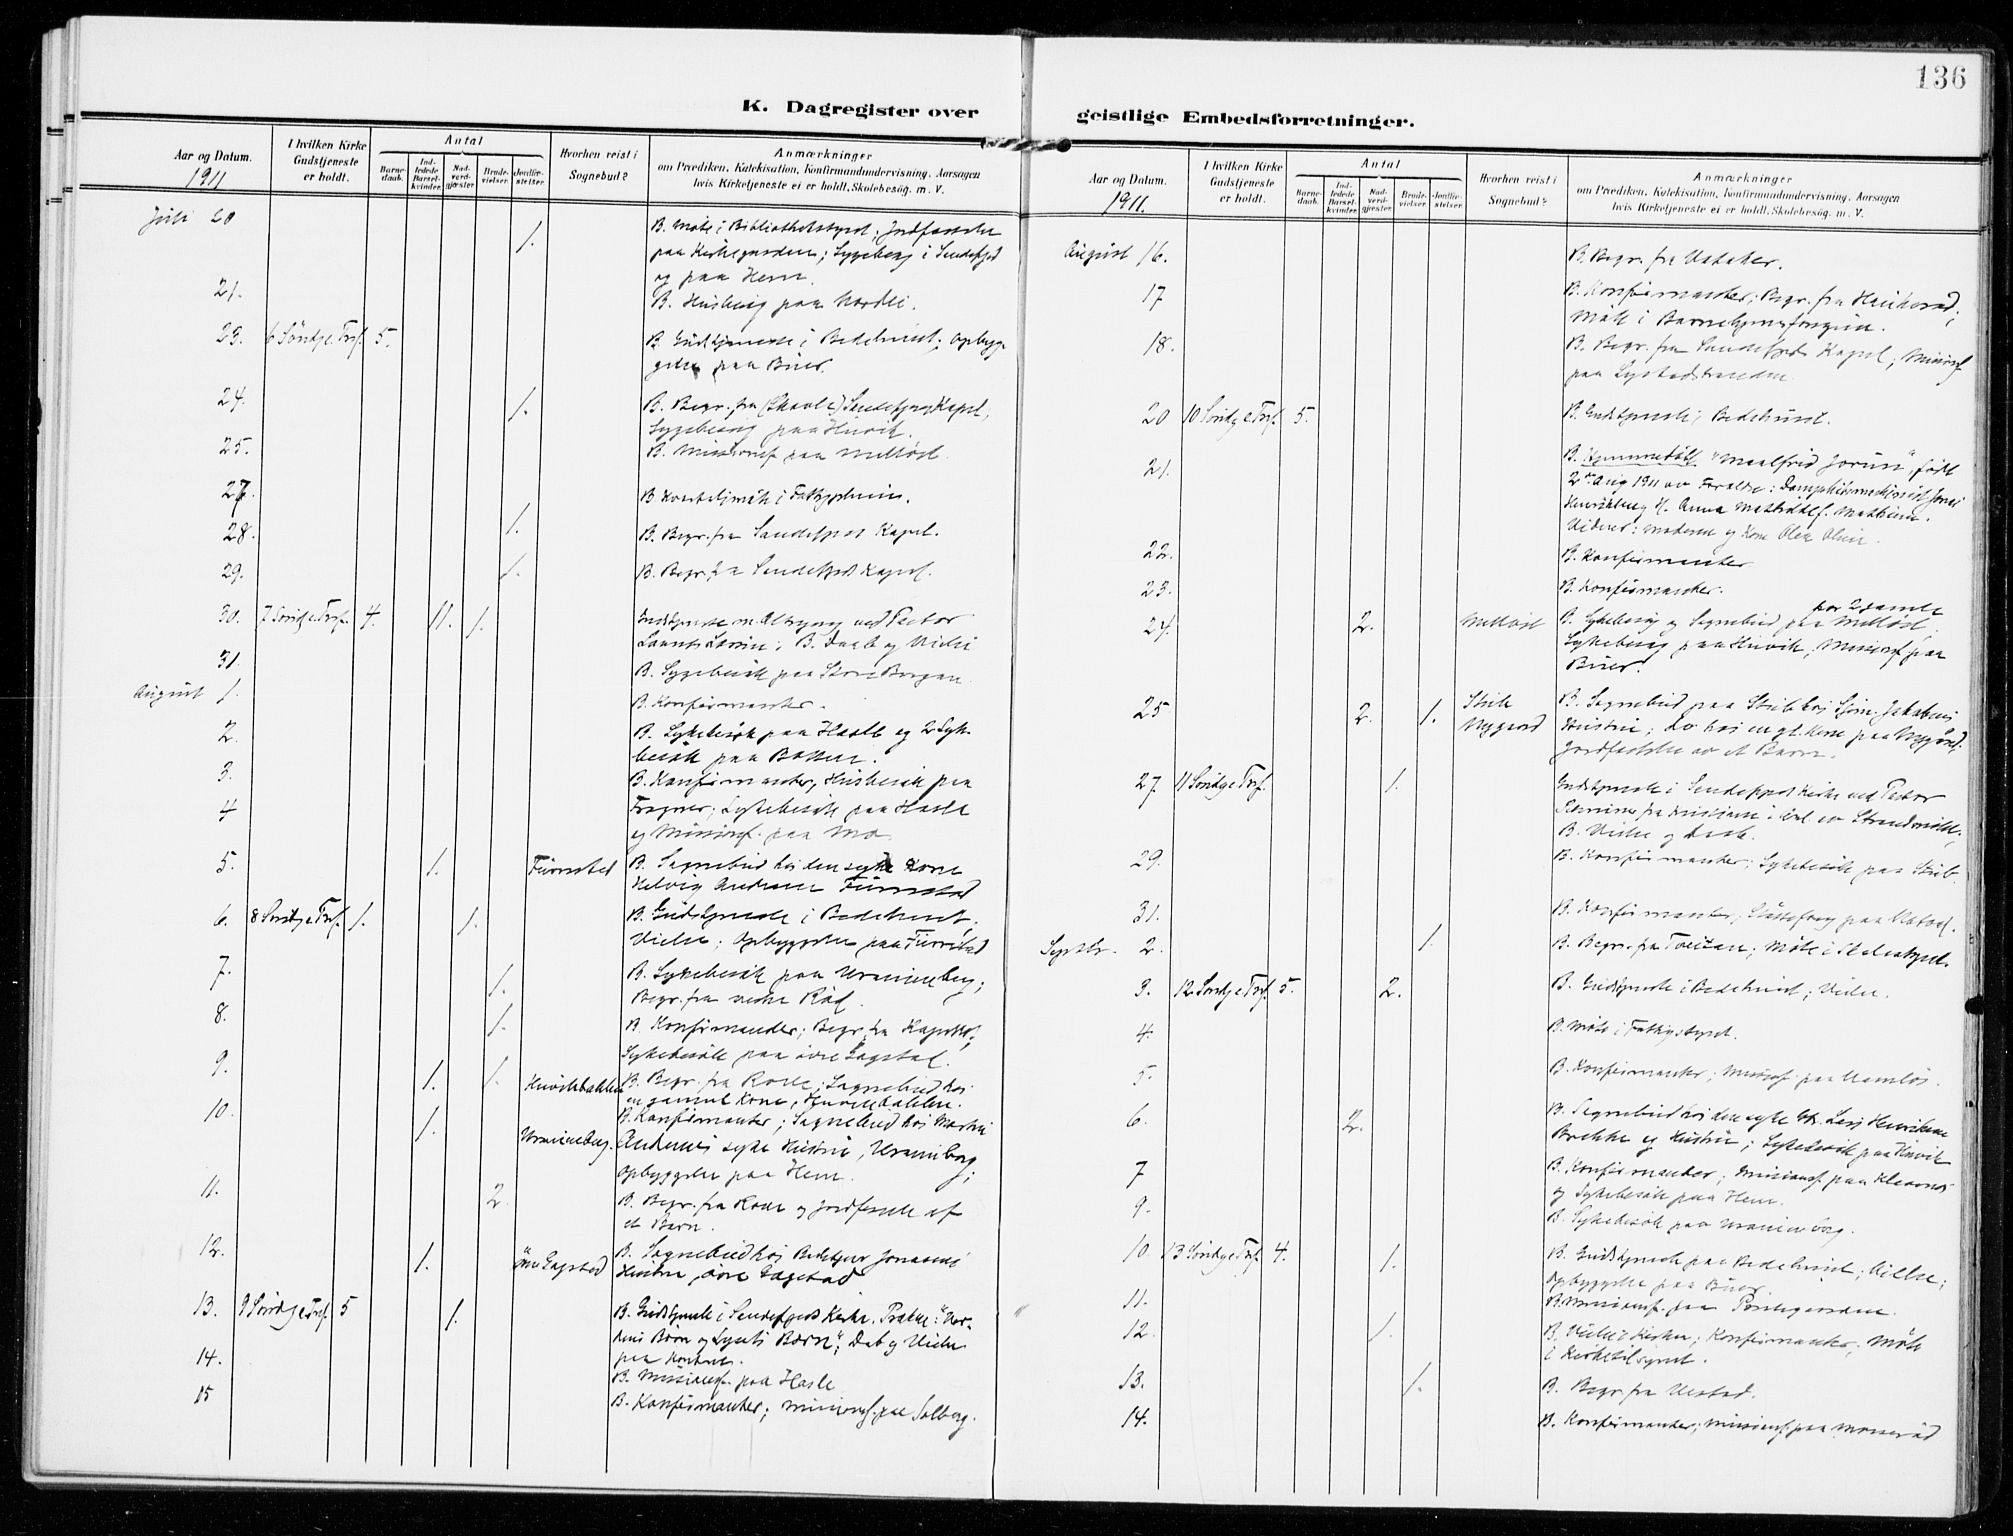 136
K. Dagregister over
geistlige Embedsforretninger.
Aar og Datum.
1911
I hvilken Kirke
Gudstjeneste
er holdt.
Antal
Barne-
daab.
Ind-
ledede
Barsel-
kvinder.
Nad-
verd-
gjæster.
Brude-
vielser.
Jordfæ-
stelser.
Hvorhen reist i
Sognebud?
Anmærkninger
om Prædiken, Katekisation, Konfirmandundervisning, Aarsagen
hvis Kirketjeneste ei er holdt, Skolebesøg. m. V.
Juli 20
1.
B. Møte i Bibliothekstyret; Jordfæstelse
paa Kirkegaarden; Sygebesøg i Sandefjord
og paa Hem.
21.
B. Husbesøg paa Nordli.
23. 6 Søndg e Tref. 5.
B. Gudstjeneste i Bedehuset; Opbyg-
gelse paa Buer.
24.
1.
B. Begr. fra Sandefjord Kapel,
Sygebesøg paa Huvik.
25.
B. Missionsf. paa
27.
B. i Fattigstyret.
28.
1.
B. Begr. fra Sandefjord Kapel.
29.
1.
B. Begr. fra Sandefjord Kapel.
30. 7 Søndg e Tref. 4. 11. 1.
Gudstjeneste m. Altergang ved Pastor
B. Daab og Vielse
31.
B. Sygebesøk paa Store Bergan.
August 1.
B. Konfirmanter.
2.
B. Sykebesøk paa Hasle og 2 Syke-
besøk paa
3.
B. Konfirmanter, Husbesøk paa
4
Sykebesøk paa Hasle
og Missionsf. paa Mo.
5. 1. Furustad
B. Sognebud hos den syke Kone
Helvig Andrea Furustad
6. 8 Søndg e Tref. 1. 1.
B. Gudstjeneste i Bedehuset,
Vielse; Opbyggelse paa Furustad
7.
1.
B. Sykebesøk paa Uranienborg;
Begr. fra nedre Råd.
8.
1.
B. Konfirmander; Begr. fra Kapellet;
Sykebesøk paa övre Gogstad.
9. 1. 1. Huvikbakken
B. Begr. fra Rode; Sognebud hos
en gammel Kone, Huvikbakken.
10. 1. Uranienborg.
B. Konfirmanter; Sognebud hos Martin
Andersens syke Hustru, Uranienborg;
Opbyggelse paa Hem.
11.
2.
B. Begr. fra Rode og Jordfæstelse af
et Barn.
12. 1. övre Gogstad
B. Sognebud hos Jonasens
Hustru, övre Gogstad
13. 9 Søndg e Tref. 5 1.
B. Gudstjeneste i Sandefjord Kirke. Præken: "Ver-
dens Børn og Lysets Børn"; Daab og Vielse
paa Kontoret.
14.
B. Missionsf. paa Hasle
15
B. Konfirmanter; Missionsf. paa Solberg.
Aar og Datum.
1911.
I hvilken Kirke
Gudstjeneste
er holdt.
Antal
Barne-
daab.
Ind-
ledede
Barsel-
kvinder.
Nad-
verd-
gjæster.
Brude-
vielser.
Jordfæ-
stelser.
Hvorhen reist i
Sognebud?
Anmærkninger
om Prædiken, Katekisation, Konfirmandundervisning, Aarsagen
hvis Kirketjeneste ei er holdt, Skolebesøg. m. V.
August 16.
B. Begr. fra
17
B. Konfirmanter; Begr. fra Haukerød;
Møte i
18.
B. Begr. fra Sandefjord Kapel; Missionsf.
paa Lystadstranden.
20 10 Søndg e Tref. 5.
B. Gudstjeneste i Bedehuset.
21.
B. Hjemmedöbt "Maalfrid Jorun", født
2den Aug 1911 av Forældre:
Henriksberg og Anna Mathilde f. Mathisen.
Vidner: Moderen og Kone Olea Olsen.
22.
B. Konfirmanter
23.
B. Konfirmanter.
24. 2.
B. Sykebesøg og Sognebud for 2 Gamle paa
Sykebesøg paa Huvik; Missionsf. paa
Buer.
25 2. 1. Stub
Nygaard
B. Sognebud paa Stub hos Jakobsens
Hustru; do hos en gl. Kone paa Nygård.
Jordfæstelse av et Barn.
27. 11 Søndg e Tref. 1.
Gudstjeneste i Sandefjord Kirke ved Pastor
fra Kristiania i
B. Vielse og Daab.
29.
B. Konfirmanter; Sykebesøk paa Stub.
31.
B. Konfirmanter; paa
Septbr. 2.
1.
B. Begr. fra Møte i Skolestyret.
3. 12 Søndg e Tref. 5. 2.
B. Gudstjeneste i Bedehuset; Vielse.
4.
B. Møte i Fattigstyret.
5.
B. Konfirmanter; Missionsf. paa
6. 2.
B. Sognebud hos den syke Lars Henriksen
Brekke og Hustru; Sykebesøk paa Huvik
7
B. Konfirmanter; Missionsf. paa
og Sykebesøk paa Hem.
9.
B. Sykebesøk paa Uranienborg.
10. 13 Søndg e Tref. 4. 1.
B. Gudstjeneste paa Bedehuset; Vielse;
Opbyggelse paa Buer.
11.
B. Missionsf. paa
12.
1.
B. Vielse i Kirken; Konfirmanter; Møte
i Kirketilsynet.
13.
1.
B. Begr. fra
14.
B. Konfirmanter; Missionsf. paa